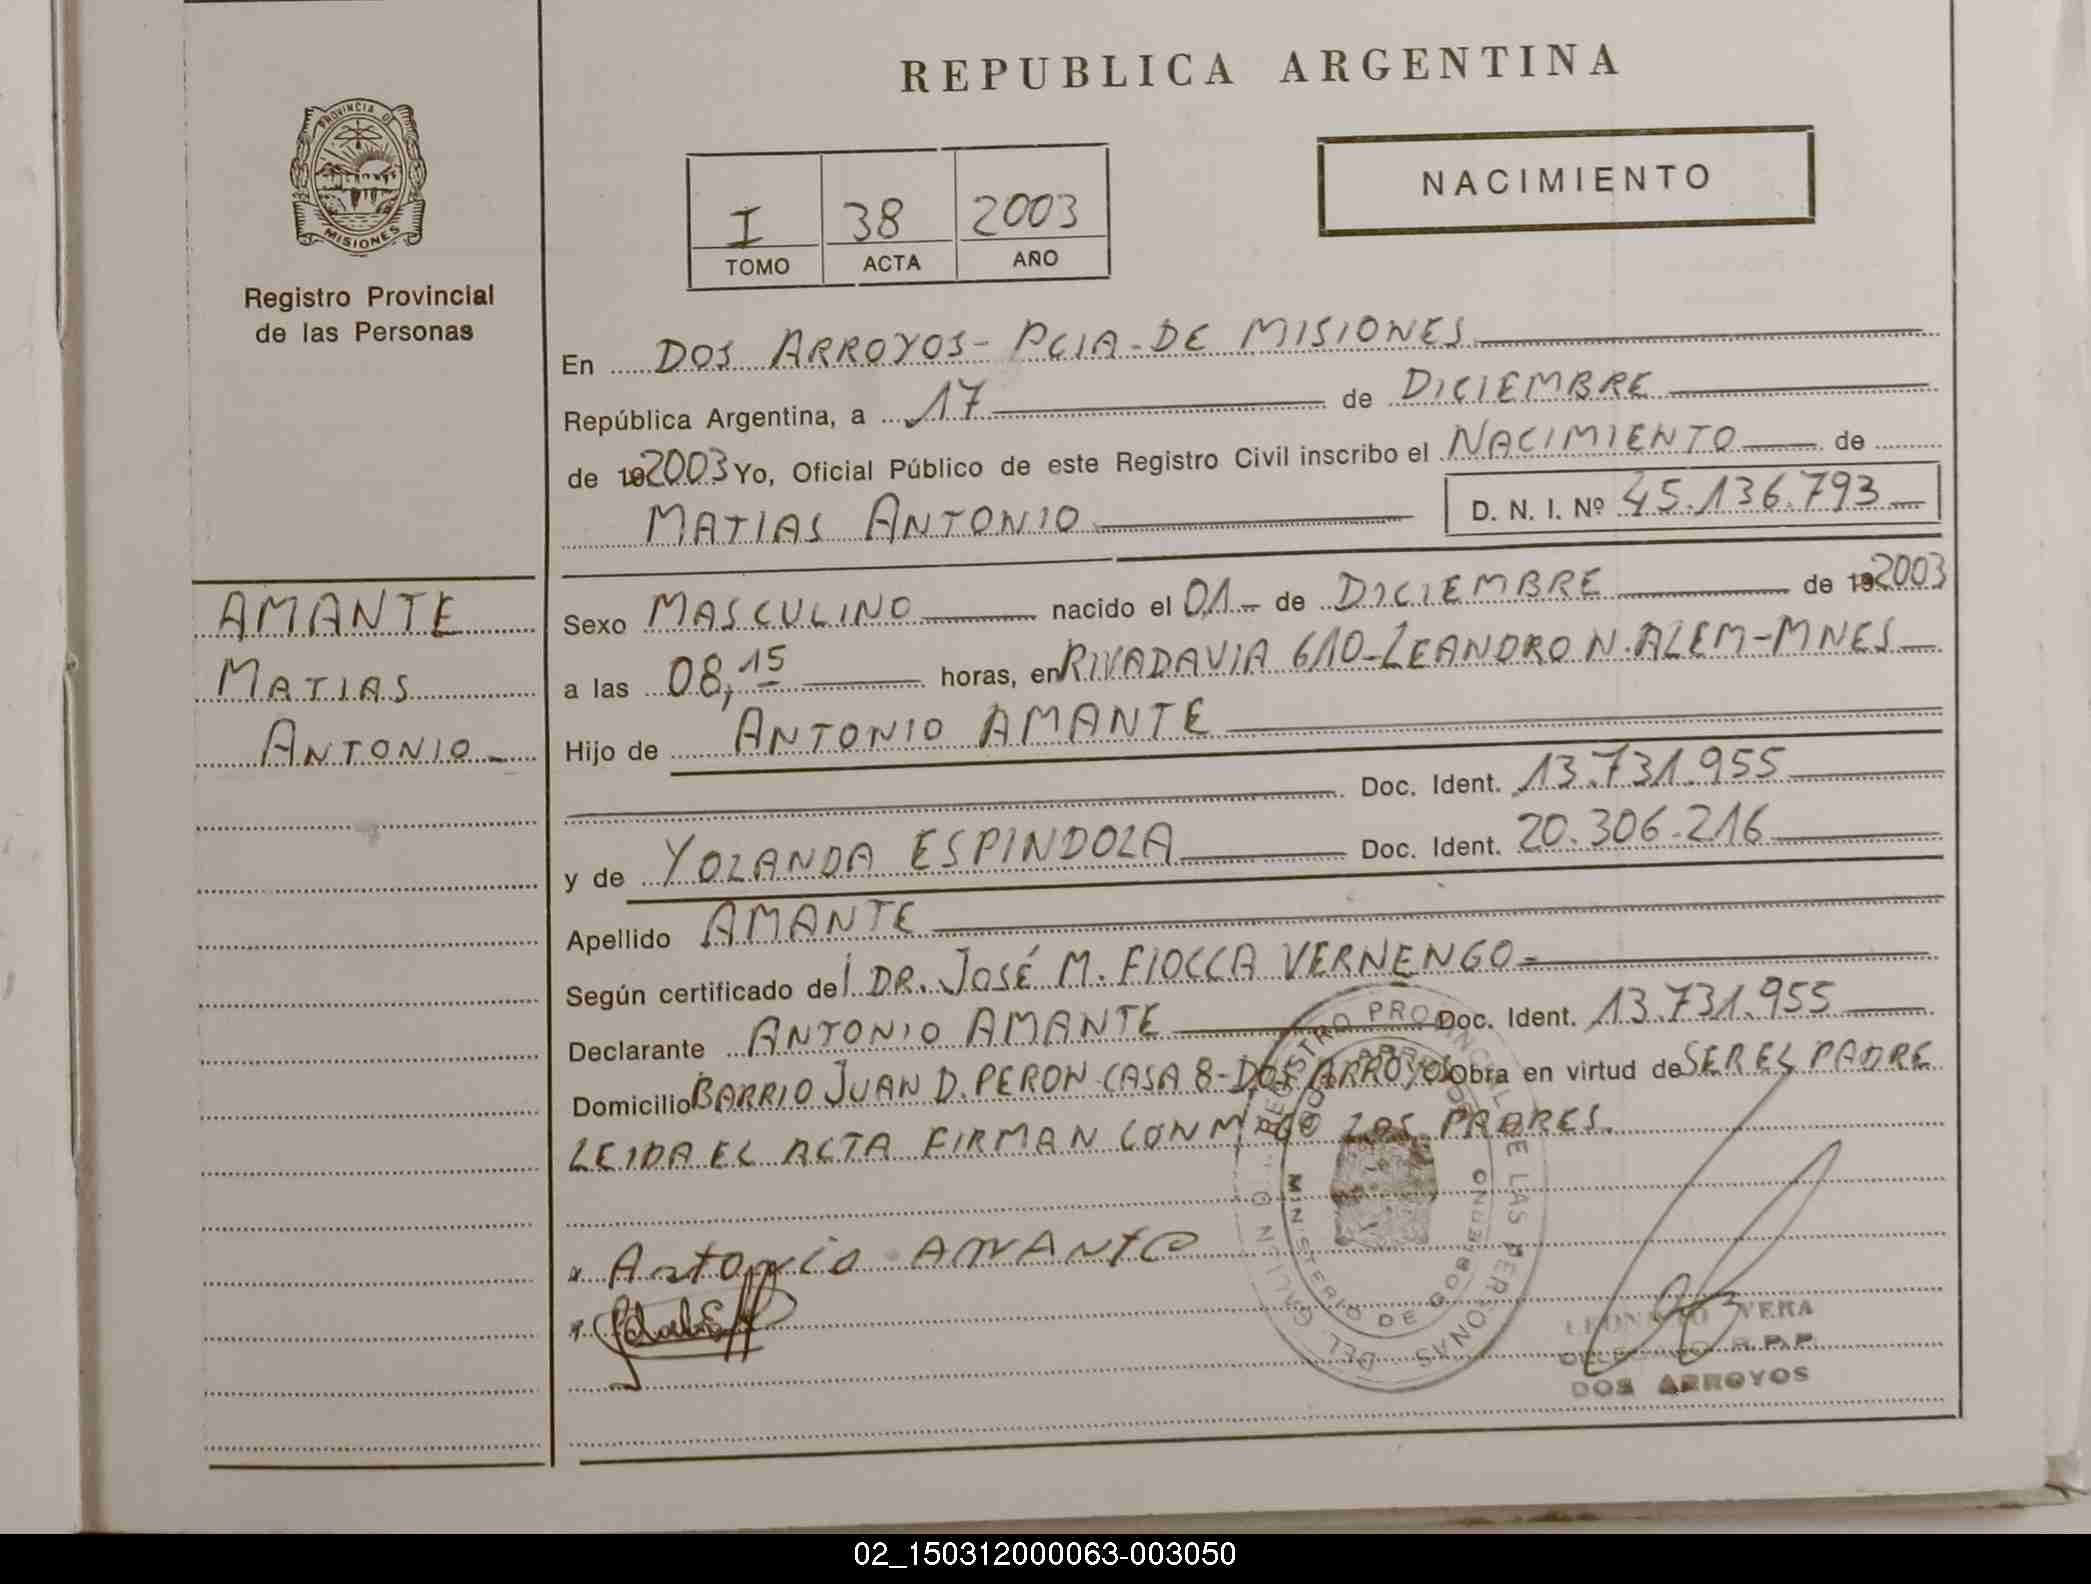 REPUBLICA ARGENTINA
PROVINCIA DE
MISIONES
Registro Provincial
de las Personas
NACIMIENTO
I 38 2003
TOMO ACTA AÑO
En DOS ARROYOS - PCIA - DE MISIONES
República Argentina, a 17 de DICIEMBRE
de 19 2003 Yo, Oficial Público de este Registro Civil inscribo el NACIMIENTO de
MATIAS ANTONIO D. N. I. Nº 45.136.793
AMANTE
MATIAS
ANTONIO
Sexo MASCULINO nacido el 01 - de DICIEMBRE de 19 2003
a las 08,15 horas, en RIVADAVIA 610 - LEANDRO N. ALEM - MNES
Hijo de ANTONIO AMANTE
Doc. Ident. 13.731.955
y de YOLANDA ESPINDOLA Doc. Ident. 20.306.216
Apellido AMANTE
Según certificado del DR. JOSÉ M. FIOCCA VERNENGO -
Declarante ANTONIO AMANTE Doc. Ident. 13.731.955
Domicilio BARRIO JUAN D. PERON - CASA 8 - DOS ARROYOS Obra en virtud de SER EL PADRE
LEIDA EL ACTA FIRMAN CONMIGO LOS PADRES.
REGISTRO PROVINCIAL DE LAS PERSONAS
MINISTERIO DE GOBIERNO
Antonio AMANTE
VERA
DELEGADO R.P.P.
DOS ARROYOS
02_150312000063-003050